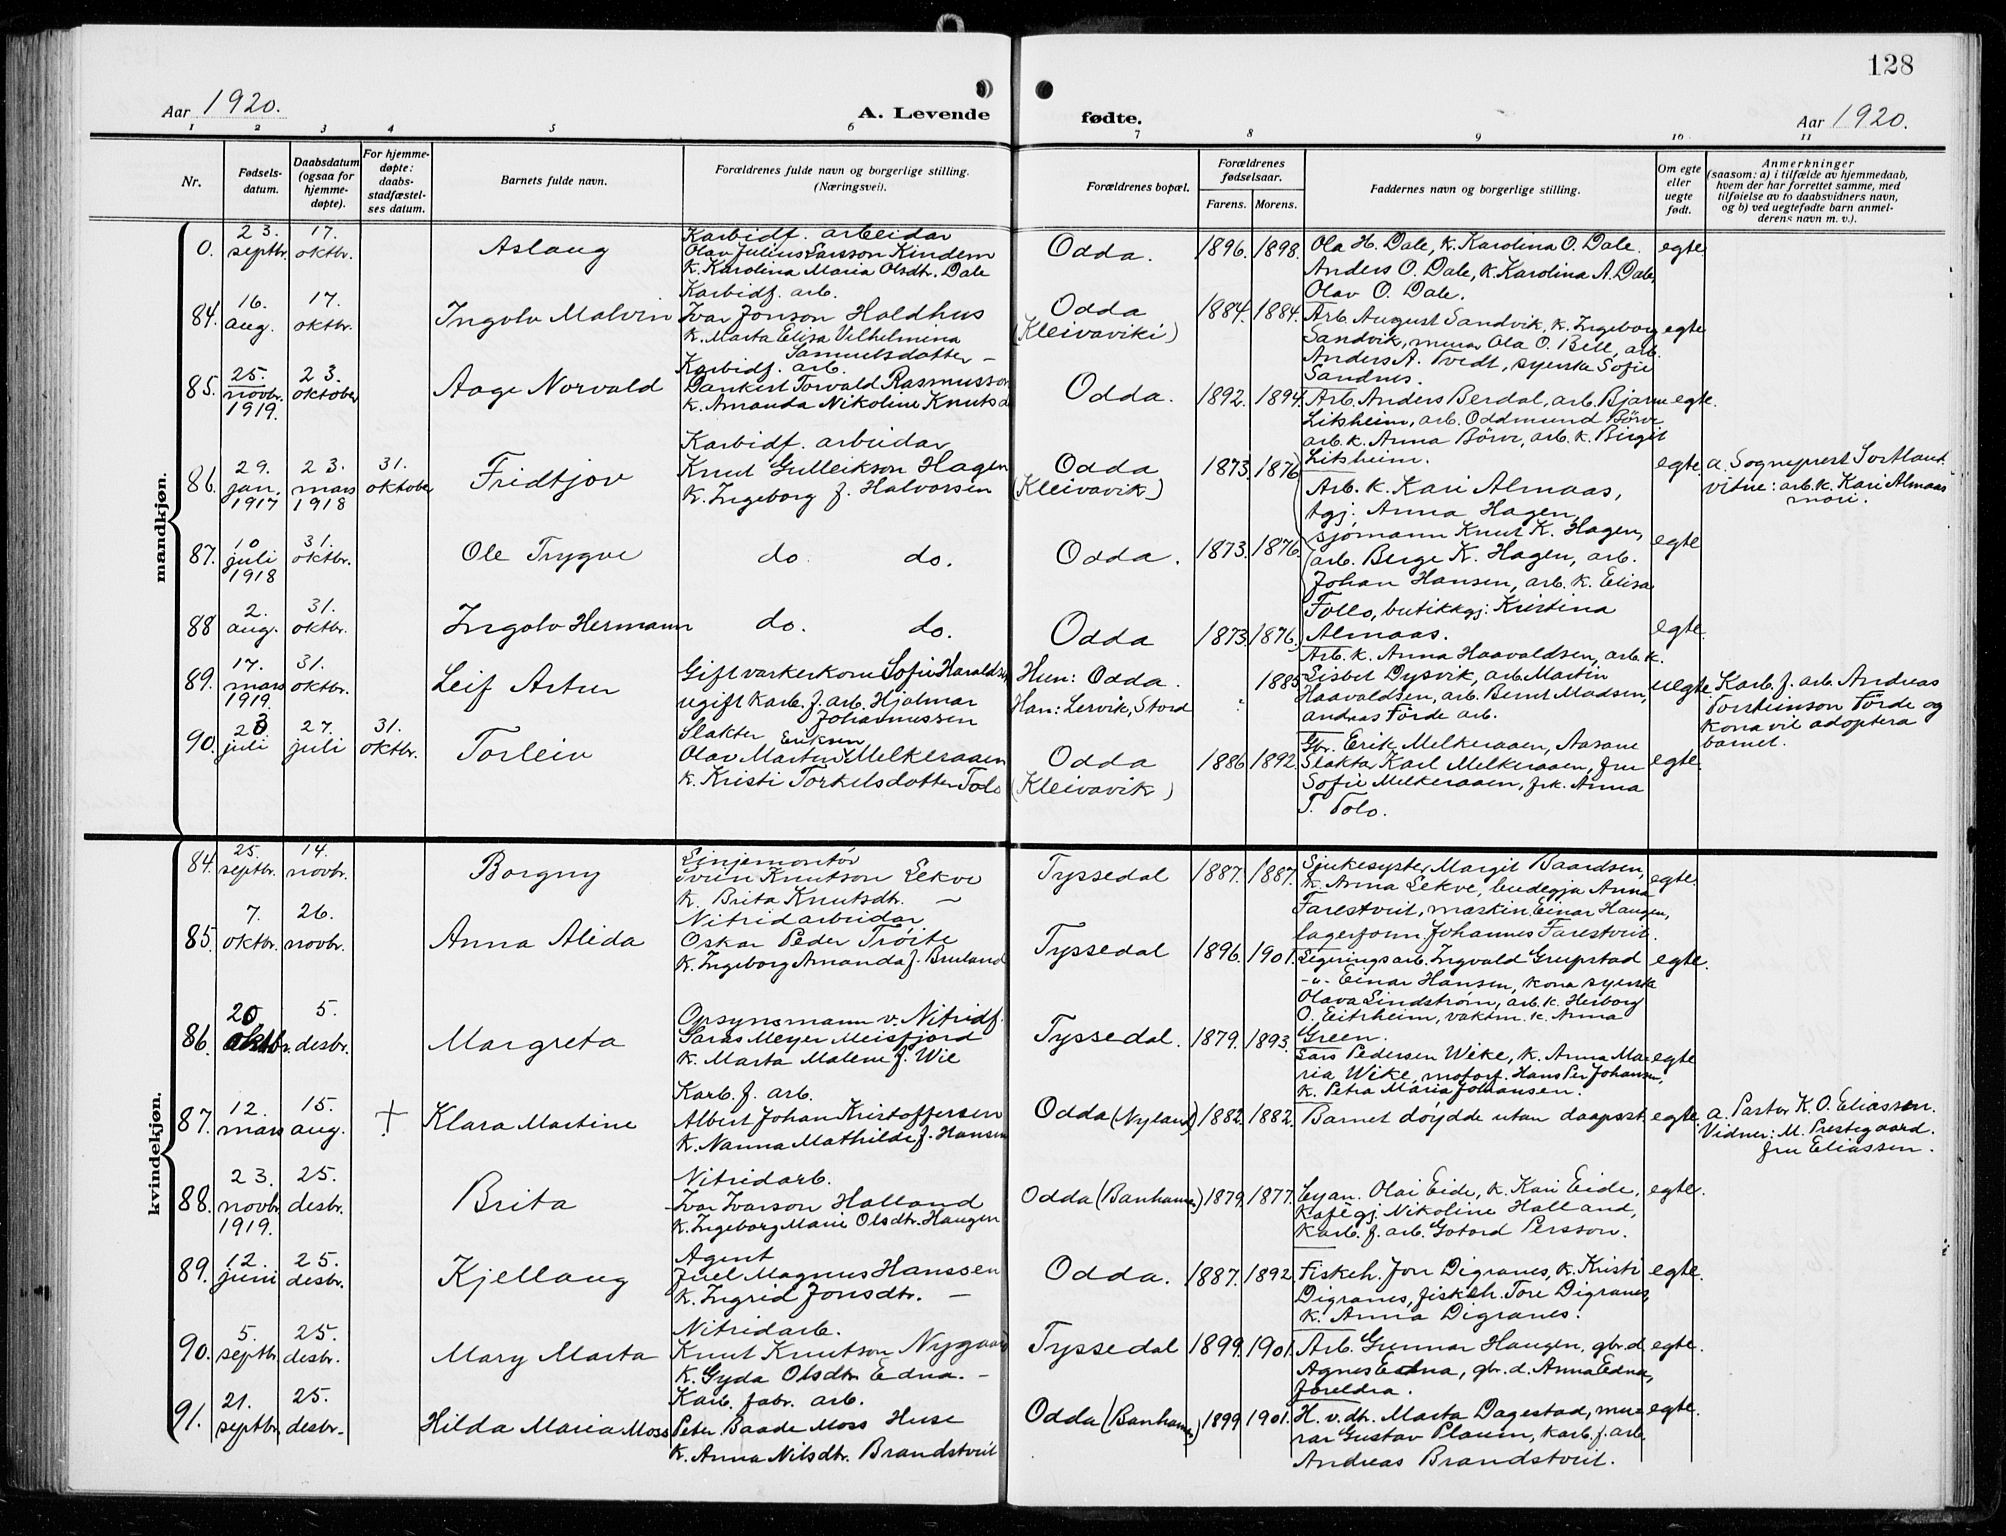 128
Aar 1920.
A. Levende fødte.
Aar 1920.
1 2 3 4 5 6 7 8 9 10 11
Nr.
Fødsels-
datum.
Daabsdatum
(ogsaa for
hjemme-
døpte).
For hjemme-
døpte:
daabs-
stadfæstel-
ses datum.
Barnets fulde navn.
Forældrenes fulde navn og borgerlige stilling.
(Næringsvei).
Forældrenes bopæl.
Forældrenes
fødselsaar.
Farens. Morens.
Faddernes navn og borgerlige stilling.
Om egte
eller
uegte
født.
Anmerkninger
(saasom: a) i tilfælde av hjemmedaab,
hvem der har forrettet samme, med
tilføielse av to daabsvidners navn,
og b) ved uegtefødte barn anmel-
derens navn m. v.).
mandkjøn.
0.
23.
septbr.
17.
oktbr.
Aslaug
Karbidf. arbeidar
Olav Julius Larsson Kindem
K. Karolina Maria Olsdt. Dale
Odda.
1896. 1898.
Ola H. Dale, K. Karolina O. Dale.
Anders O. Dale, K. Karolina A. Dale,
Olav O. Dale.
egte
84.
16.
aug.
17.
oktbr.
Ingolv Malvin
Karbidf. arb.
Ivar Jonson Holdhus
K. Marta Elisa Vilhelmina
Samuelsdotter –
Odda
(Kleivaviki)
1884. 1884.
Arb. August Sandvik, K. Ingeborg
Sandvik, murar Ola O. Bell, arb.
Anders A. Tvedt, syerske Sofie
Sandnes.
egte
85.
25.
novbr.
1919.
23.
oktober
Aage Norvald
Karbidf. arb.
Dankert Torvald Rasmusson
K. Amanda Nikoline Knutsd
Odda.
1892. 1894.
Arb. Anders Berdal, arb. Bjarne
Litsheim, arb. Oddmund Börve
arb. k. Anna Börve, arb. k. Birgit
Litsheim.
egte.
86.
29.
jan.
1917
23.
mars
1918
31.
oktober
Fridtjov
Karbidf. arbeidar
Knut Gulleikson Hagen
K. Ingeborg f. Halvorsen
Odda
(Kleivavik)
1873. 1876
Arb. K. Kari Almaas,
tgj. Anna Hagen,
egte.
a. Sogneprest Sortland.
vitne: arb. k. Kari Almaas
mori.
87.
10
juli
1918
31.
oktbr.
Ole Trygve
do. do.
Odda.
1873. 1876.
sjømann Knut K. Hagen,
arb. Berge K. Hagen, arb.
Johan Hansen, arb. K. Elisa
egte
88
2.
aug.
31.
oktbr.
Ingolv Hermann
do. do.
Odda
1873. 1876.
Follo, butikkgj. Kristina
Almaas.
egte.
89.
17.
mars
1919.
31.
oktbr.
Leif Artur
Gift varkerkone Sofie Haraldsen
ugift Karb. f. arb. Hjalmar
Johannessen
Hun: Odda.
Han: Lervik, Stord
1885
Arb. k. Anna Haavaldsen, arb. k.
Lisbet Dysvik, arb. Martin
Haavaldsen, arb. Bernt Madsen,
andras Förde arb.
uegte.
Karb. f. arb. Andreas
Torsteinson Förde og
Kona vil adoptera
barnet.
90.
23
juli
27.
juli
31.
oktbr.
Torleiv
Slakter
Eriksen
Olav Martin Melkeraaen
K. Kristi Torkelsdotter Tolo
Odda
(Kleivavik)
1886 1892
Gbr. Erik Melkeraaen, Aasane
Slakta Karl Melkeraaen, fru
Sofie Melkeraaen, frk. Anna
T. Tolo.
egte.
kvindekjøn.
84.
25.
septbr.
14.
novbr.
Borgny
Linjemontör
Svein Knutson Lekve
K. Brita Knutsdt. –
Tyssedal
1887. 1887.
Sjukesyster Margit Baardsen,
K. Anna Lekve, budegja Anna
Farestveit, maskin. Einar Haugen,
lagerform. Johannes Farestveit.
egte.
85.
7.
oktbr.
26.
novbr.
Anna Alida
Nitridarbeidar
Oskar Peder Tröite
K. Ingeborg Amanda f. Bruland
Tyssedal
1896. 1901.
Legeringsarb. Ingvald Grupstad
-"- Einar Hansen, kona syerske
Olava Lindström, arb. k. Herborg
O. Eitrheim, vaktm. k. Anna
Green.
egte.
86.
20
oktbr.
5.
desbr.
Margreta
Opsynsmann v. Nitridf.
Lars Meyer Meisfjord
K. Marta Malene f. Wie
Tyssedal.
1879. 1893.
Lars Pedersen Wike, K. Anna Ma-
ria Wike, motorf. Hans Per Johansen,
K. Petra Maria Johansen.
egte
87.
12.
mars
15.
aug.
†
Klara Martine
Karb. f. arb.
Albert Johan Kristoffersen
K. Nanna Mathilde f. Hansen
Odda (Nyland)
1882. 1882.
Barnet döydde utan daapsst.
egte.
a. Pastor K. O. Eliassen.
Vidner: M. Prestegaard.
fru Eliassen.
88.
23.
novbr.
1919.
25.
desbr.
Brita
Nitridarb.
Ivar Ivarson Halland
K. Ingeborg Marie Olsdtr. Haugen
Odda (Banhamn)
1879. 1877.
Olai Eide, K. Kari Eide,
Kafégj. Nikoline Halland,
Karb. f. arb. Gotard Persson.
egte.
89.
12.
juni
25.
desbr.
Kjellaug
Agent
Juel Magnus Hanssen
K. Ingrid Jonsdtr. –
Odda.
1887. 1892.
Fiskeh. Jon Digranes, K. Kristi
Digranes, fiskeh. Tore Digranes,
K. Anna Digranes.
egte.
90.
5.
septbr.
25.
desbr.
Mary Marta
Nitridarb.
Knut Knutson Nygaard
K. Gyda Olsdtr Edna. –
Tyssedal
1899. 1901.
Arb. Gunnar Haugen, gbr. d.
Agnes Edna, gbr. d. Anna Edna,
foreldra.
egte.
91.
21.
septbr.
25.
desbr.
Hilda Maria Moss
Karb. fabr. arb.
Peter Baade Moss Huse
K. Anna Nilsdtr. Brandstveit
Odda (Banhamn)
1899 1901.
H. v. dtr. Marta Dagestad, mu-
rar Gustav Plaum, Karb. f. arb.
Andreas Brandstveit.
egte.